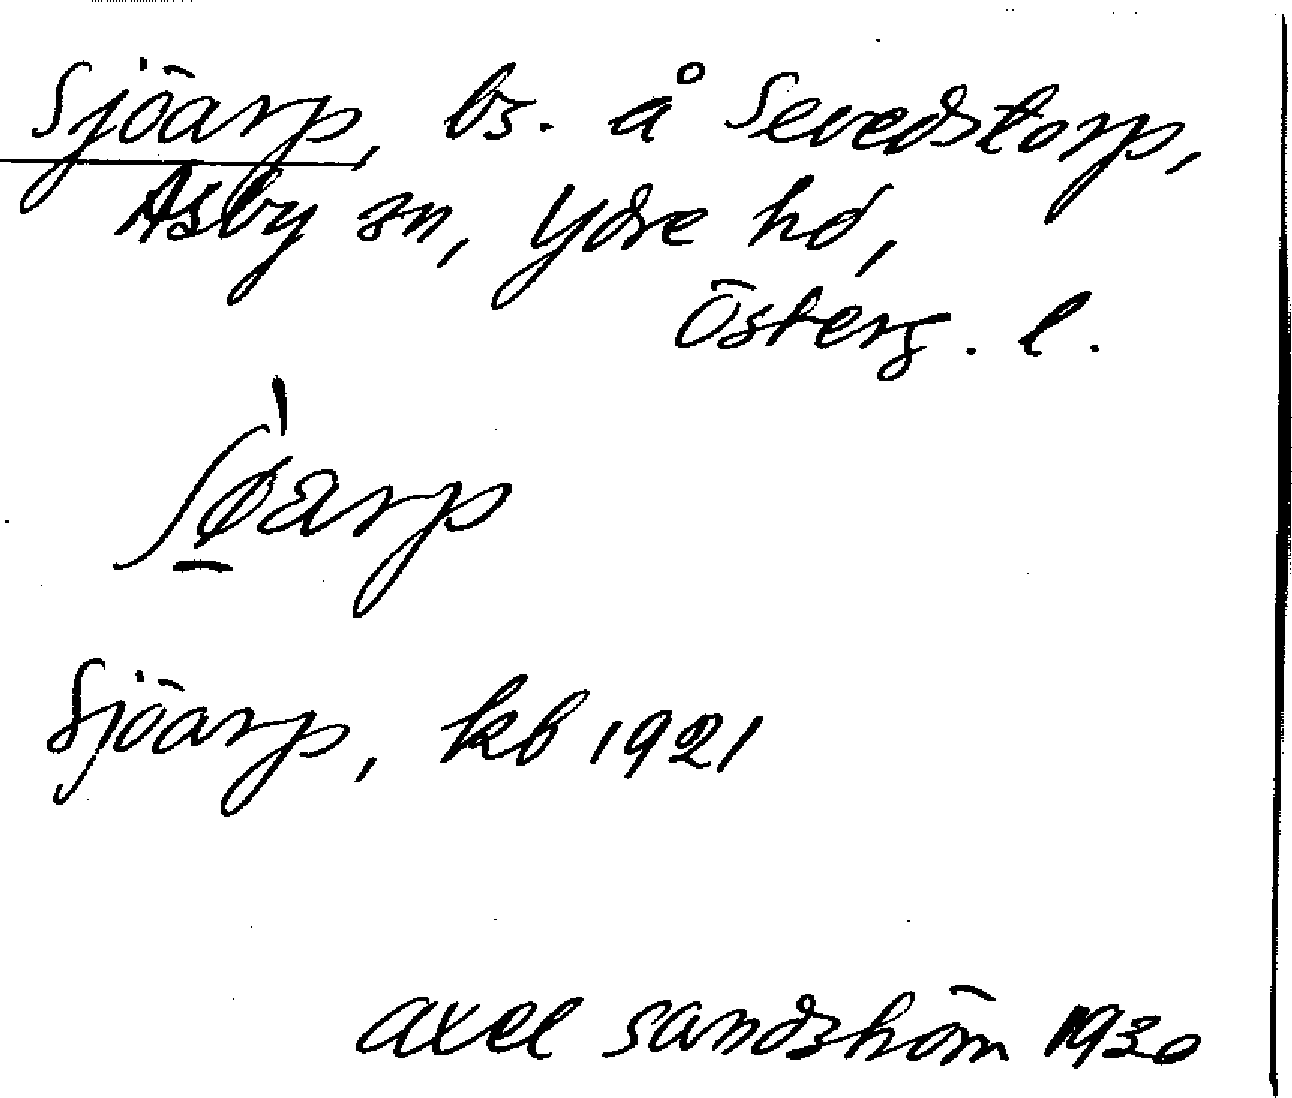 Sjöarp, bs. å Sevedstorp,
Asby sn, Ydre hd,
Österg. l.
ʃø̱̍arp
Sjöarp, kb 1921
Axel Sandström 1930